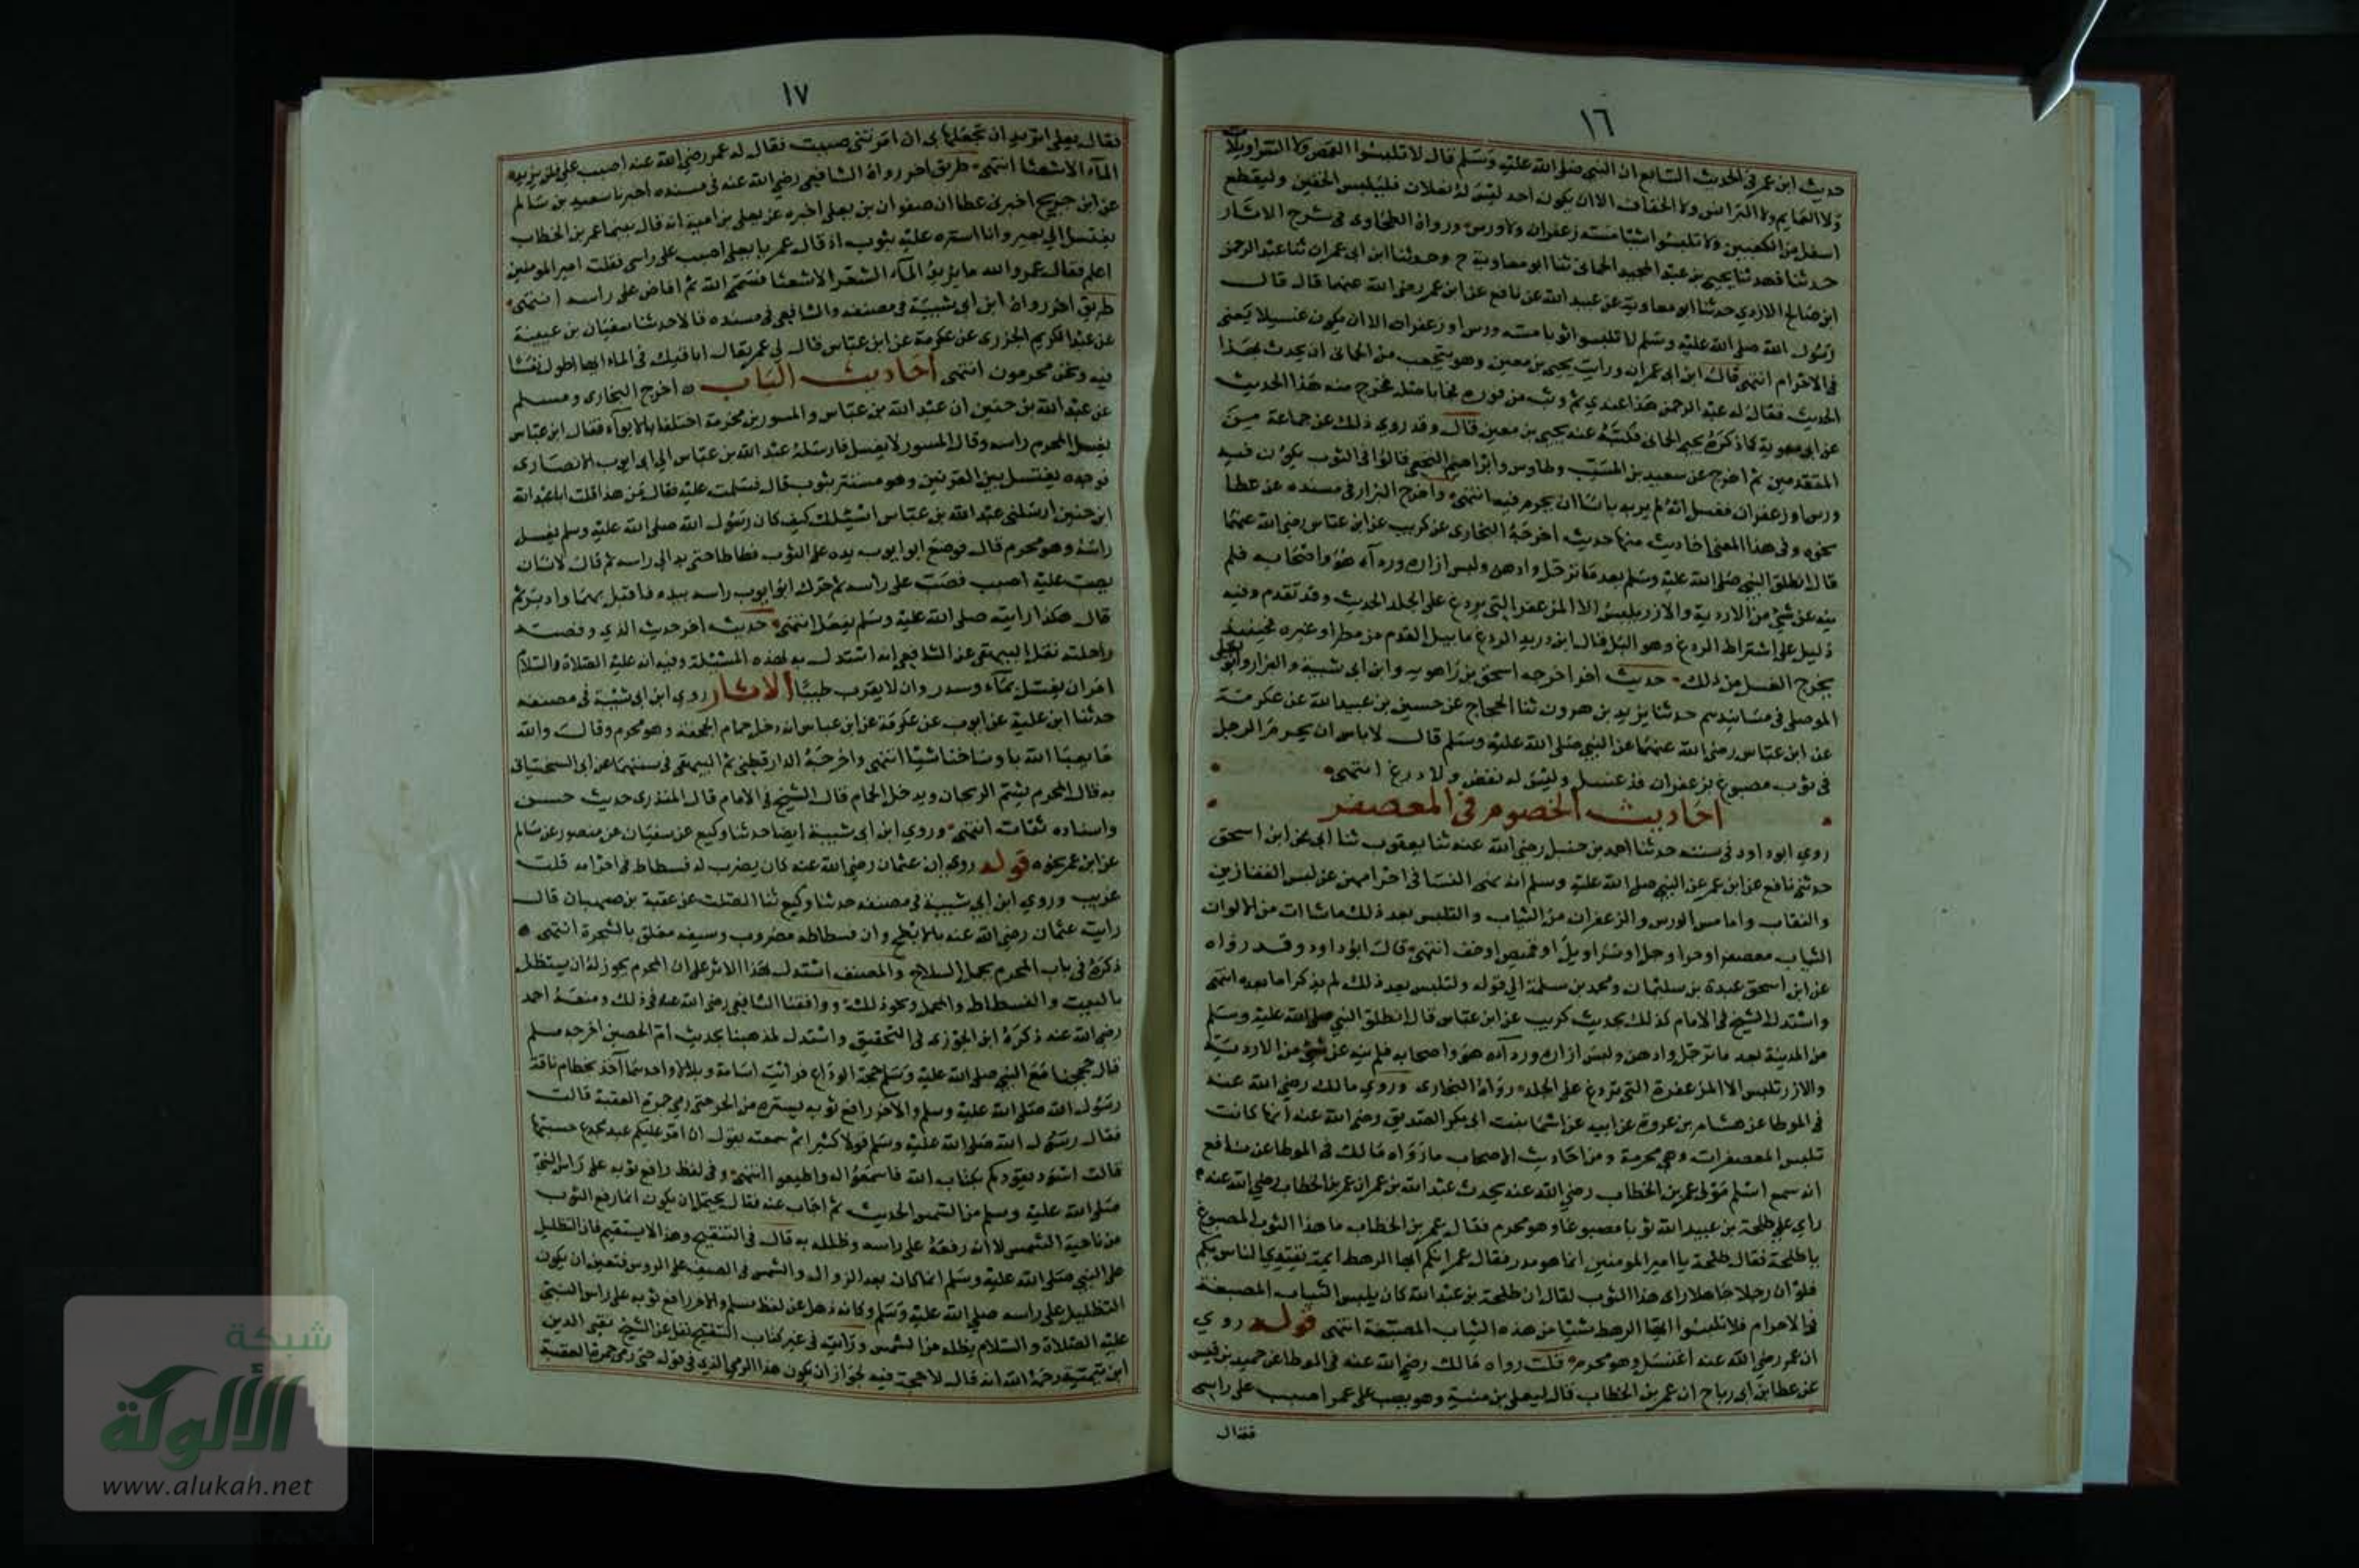 ١٦
حديث ابن عمر في الحديث السابع ان النبي صلى الله عليه وسلم قال لا تلبسوا القمص ولا السراويلات
ولا العمايم ولا البرانس ولا الخفاف الا ان يكون احد ليس له نعلان فليلبس الخفين وليقطع
اسفل من الكعبين ولا تلبسوا شيئا مسه زعفران ولا ورس ورواه الطحاوي في شرح الاثار
حدثنا فهد ثنا يحيى بن عبد الحميد الحماني ثنا ابو معاوية ح وحدثنا ابن ابي عمران ثنا عبد الرحمن
ابن صالح الازدي حدثنا ابو معاوية عن عبيد الله عن نافع عن ابن عمر رضي الله عنهما قال قال
رسول الله صلى الله عليه وسلم لا تلبسوا ثوبا مسه ورس او زعفران الا ان يكون غسيلا يعني
في الاحرام انتهى قال ابن ابي عمران ورايت يحيى بن معين وهو يتعجب من الحماني ان يحدث بهذا
الحديث فقال له عبد الرحمن هذا عندي ثم وثب من فوره فجا باصله فخرج منه هذا الحديث
عن ابي معوية كما ذكره يحيى الحماني فكتبه عنه يحيى بن معين قال وقد روي ذلك عن جماعة من
المتقدمين ثم اخرج عن سعيد بن المسيب وطاوس وابراهيم النخعي قالوا في الثوب يكون فيه
ورس او زعفران فغسل انه لم ير به باسا ان يحرم فيه انتهى واخرج البزار في مسنده عن عطا
نحوه وفي هذا المعنى احاديث منها حديث اخرجه البخاري عن كريب عن ابن عباس رضي الله عنهما
قال انطلق النبي صلى الله عليه وسلم بعد ما ترجل وادهن ولبس ازاره ورداه هو واصحابه فلم
ينه عن شي من الاردية والازر يلبس الا المزعفر التي تردع على الجلد الحديث وقد تقدم وفيه
دليل على اشتراط الردع وهو البل قال ابن دريد الردع ما يبل القدم من مطر او غيره فحينئذ
يخرج الغسيل من ذلك حديث اخر اخرجه اسحق بن راهويه وابن ابي شيبة والبزار وابو يعلى
الموصلي في مسانيدهم حدثنا يزيد بن هرون ثنا الحجاج عن حسين بن عبيد الله عن عكرمة
عن ابن عباس رضي الله عنهما عن النبي صلى الله عليه وسلم قال لا باس ان يحرم الرجل
في ثوب مصبوغ بزعفران قد غسل وليس له نفض ولا ردع انتهى
احاديث الخصوم في المعصفر
روي ابو داود في سننه حدثنا احمد بن حنبل رضي الله عنه ثنا يعقوب ثنا ابي عن ابن اسحق
حدثني نافع عن ابن عمر عن النبي صلى الله عليه وسلم انه نهى النسا في احرامهن عن لبس القفازين
والنقاب وما مس الورس والزعفران من الثياب والتلبس بعد ذلك ما شاات من الالوان
الثياب معصفرا او حرا او حلي او سراويل او قميص او خف انتهى قال ابو داود وقد رواه
عن ابن اسحق عبدة بن سليمان ومحمد بن سلمة الى قوله ولتلبس بعد ذلك لم يذكرا ما بعده انتهى
واستدل الشيخ في الامام كذلك بحديث كريب عن ابن عباس قال انطلق النبي صلى الله عليه وسلم
من المدينة بعد ما ترجل وادهن ولبس ازاره ورداه هو واصحابه فلم ينه عن شي من الاردية
والازر تلبس الا المزعفرة التي تردع على الجلد رواه البخاري وروي مالك رضي الله عنه
في الموطا عن هشام بن عروة عن ابيه عن اسما بنت ابي بكر الصديق رضي الله عنه انها كانت
تلبس المعصفرات وهي محرمة ومن احاديث الاصحاب ما رواه مالك في الموطا عن نافع
انه سمع اسلم مولى عمر بن الخطاب رضي الله عنه يحدث عبد الله بن عمر ان عمر بن الخطاب رضي الله عنه
راي على طلحة بن عبيد الله ثوبا مصبوغا وهو محرم فقال عمر بن الخطاب ما هذا الثوب المصبوغ
يا طلحة فقال طلحة يا امير المومنين انما هو مدر فقال عمر انكم ايها الرهط ايمة يقتدي الناس بكم
فلو ان رجلا جاهلا راى هذا الثوب لقال ان طلحة بن عبد الله كان يلبس الثياب المصبغة
في الاحرام فلا تلبسوا ايها الرهط شيئا من هذه الثياب المصبغة انتهى قوله روي
ان عمر رضي الله عنه اغتسل وهو محرم قلت رواه مالك رضي الله عنه في الموطا عن حميد بن قيس
عن عطا بن ابي رباح ان عمر بن الخطاب قال ليعلى بن منية وهو يصب على عمر اصبب على راسي
فقال
١٧
فقال يعلى اتريد ان تجعلها بي ان امرتني صببت فقال له عمر رضي الله عنه اصبب على فلن يزيده
الماء الا شعثا انتهى طريق اخر رواه الشافعي رضي الله عنه في مسنده اخبرنا سعيد بن سالم
عن ابن جريج اخبرني عطا ان صفوان بن يعلى اخبره عن يعلى بن امية انه قال بينما عمر بن الخطاب
يغتسل الى بعير وانا استره عليه بثوب اذ قال عمر يا يعلى اصبب على راسي فقلت امير المومنين
اعلم فقال عمر والله ما يزيد الماء الشعر الا شعثا فسمى الله ثم افاض على راسه انتهى
طريق اخر رواه ابن ابي شيبة في مصنفه والشافعي في مسنده قالا حدثنا سفيان بن عيينة
عن عبد الكريم الجزري عن عكرمة عن ابن عباس قال لي عمر تعال اباقيك في الماء ايها اطول نفسا
فيه ونحن محرمون انتهى احاديث الباب اخرج البخاري ومسلم
عن عبد الله بن حنين ان عبد الله بن عباس والمسور بن مخرمة اختلفا بالابواء فقال ابن عباس
يغسل المحرم راسه وقال المسور لا يغسل فارسله عبد الله بن عباس الى ابي ايوب الانصاري
فوجده يغتسل بين القرنين وهو مستتر بثوب قال فسلمت عليه فقال من هذا قلت انا عبد الله
ابن حنين ارسلني عبد الله بن عباس اسيلك كيف كان رسول الله صلى الله عليه وسلم يغسل
راسه وهو محرم قال فوضع ابو ايوب يده على الثوب فطاطا حتى بدا لي راسه ثم قال لانسان
يصب عليه اصبب فصب على راسه ثم حرك ابو ايوب راسه بيده فاقبل بهما وادبر ثم
قال هكذا رايته صلى الله عليه وسلم يفعل انتهى حديث اخر حديث الذي وقصته
راحلته نقل البيهقي عن الشافعي انه استدل به لهذه المسئلة وفيه انه عليه الصلاة والسلام
امر ان يغسل بماء وسدر وان لا يقرب طيبا الاثار روي ابن ابي شيبة في مصنفه
حدثنا ابن علية عن ايوب عن عكرمة عن ابن عباس انه دخل حمام الجحفة وهو محرم وقال والله
ما يعبا الله باوساخنا شيئا انتهى واخرجه الدارقطني ثم البيهقي في سننهما عن ابي السختياني
به قال المحرم يشم الريحان ويدخل الحمام قال الشيخ في الامام قال المنذري حديث حسن
واسناده ثقات انتهى وروي ابن ابي شيبة ايضا حدثنا وكيع عن سفيان عن منصور عن سالم
عن ابن عمر نحوه قوله روي ان عثمان رضي الله عنه كان يضرب له فسطاط في احرامه قلت
غريب وروي ابن ابي شيبة في مصنفه حدثنا وكيع ثنا الصلت عن عقبة بن صهبان قال
رايت عثمان رضي الله عنه بالابطح وان فسطاطه مضروب وسيفه معلق بالشجرة انتهى
ذكره في باب المحرم يحمل السلاح والمصنف استدل بهذا الاثر على ان المحرم يجوز له ان يستظل
بالبيت والفسطاط والمحمل ونحو ذلك ووافقنا الشافعي رضي الله عنه في ذلك ومنعه احمد
رضي الله عنه ذكره ابن الجوزي في التحقيق واستدل لمذهبنا بحديث ام الحصين اخرجه مسلم
قال حججنا مع النبي صلى الله عليه وسلم حجة الوداع فرايت اسامة وبلالا واحدهما اخذ بخطام ناقة
رسول الله صلى الله عليه وسلم والاخر رافع ثوبه يستره من الحر حتى رمى جمرة العقبة قالت
فقال رسول الله صلى الله عليه وسلم قولا كثيرا ثم سمعته يقول ان امر عليكم عبد مجدع حسبتها
قالت اسود يقودكم بكتاب الله فاسمعوا له واطيعوا انتهى وفي لفظ رافع ثوبه على راس النبي
صلى الله عليه وسلم من الشمس الحديث ثم اجاب عنه فقال يحتمل ان يكون انما رفع الثوب
من ناحية الشمس لا انه رفعه على راسه وظلله به قال في التنقيح وهذا لا يستقيم فان التظليل
على النبي صلى الله عليه وسلم انما كان بعد الزوال والشمس في الصيف على الروس فتعين ان يكون
التظليل على راسه صلى الله عليه وسلم وكانه ذهل عن لفظ مسلم والاخر رافع ثوبه على راس النبي
عليه الصلاة والسلام يظله من الشمس ورايته في غير كتاب التنقيح نقل عن الشيخ تقي الدين
ابن تيمية رحمه الله انه قال لا حجة فيه لجواز ان يكون هذا الرمي الذي في قوله حتى رمى جمرة العقبة
شبكة
الألوكة
www.alukah.net